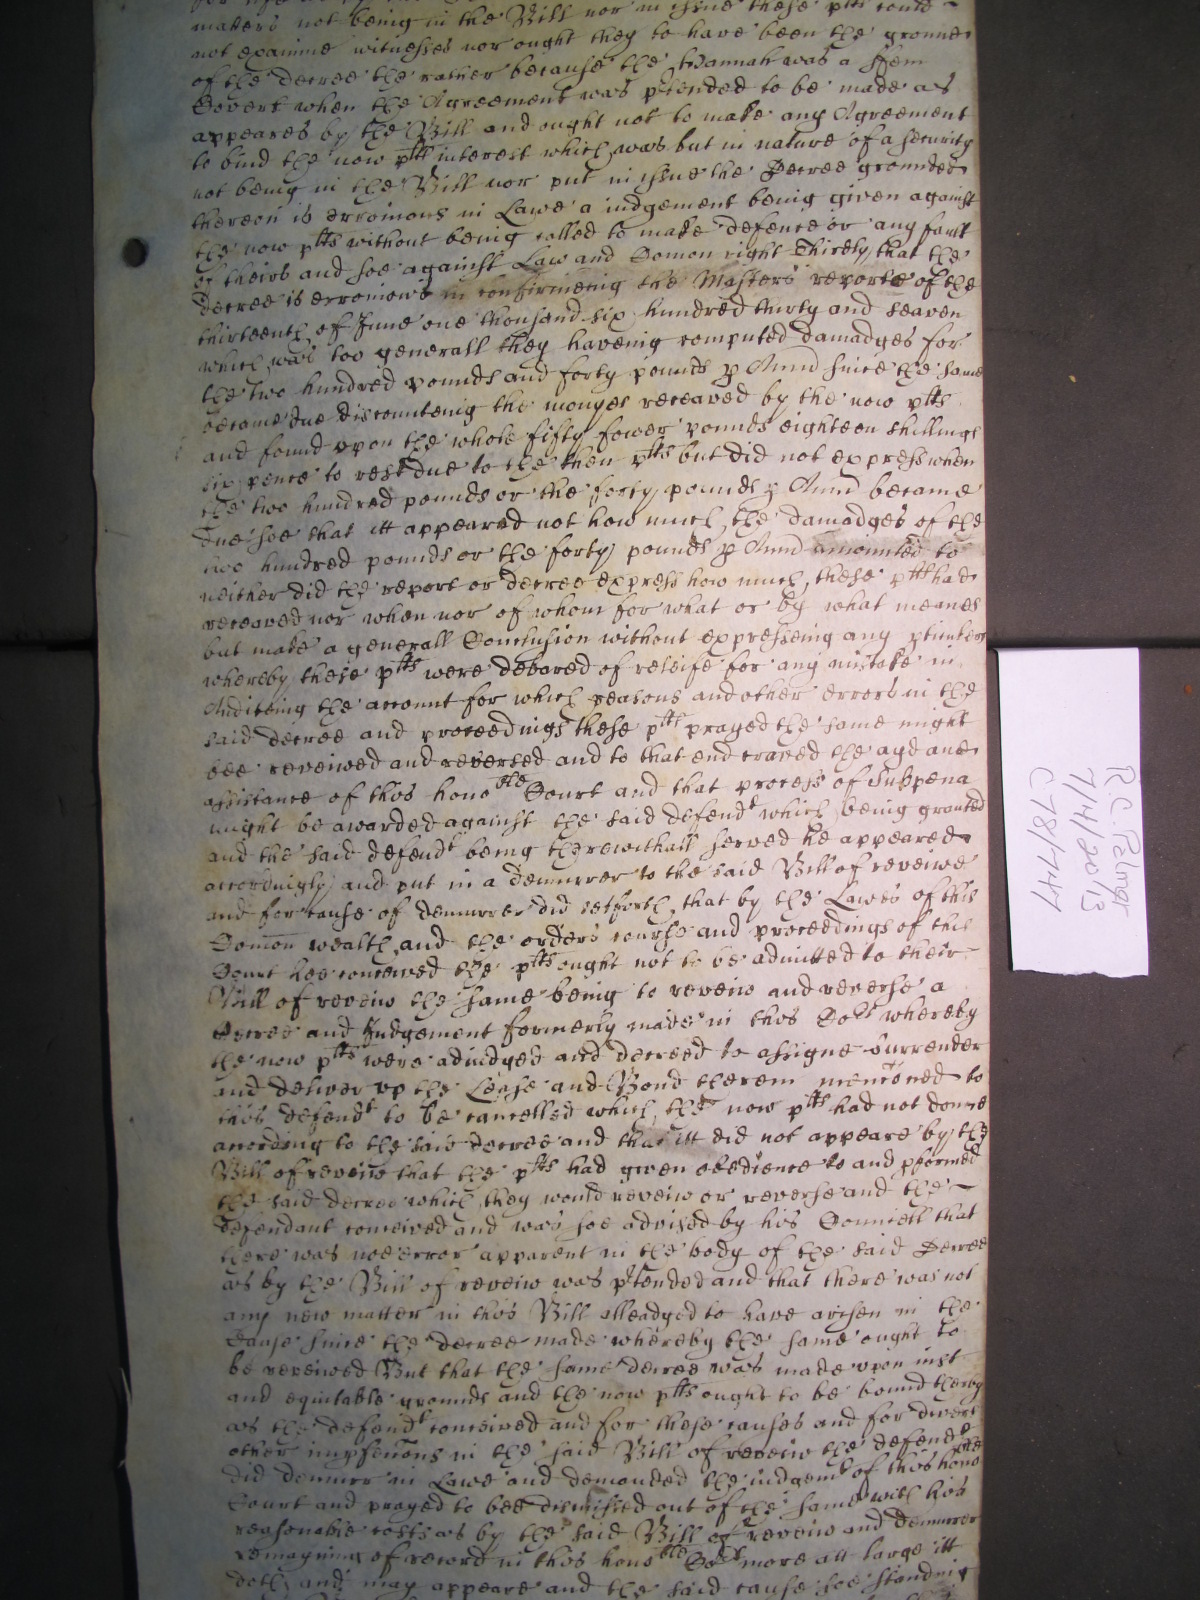 matters not being in the Bill nor in issue these plts could
not examine witnesses nor ought they to have been the ground
of the decree the rather because the Hannah was a ffem
Covert when the Agreement was ptended to be made as
appeares by the Bill and ought not to make any Agreement
to bind the now plts interest which was but in nature of a security
not being in the Bill nor put in issue the Decree grounded
thereon is erronious in Lawe a iudgement being given against
the now plts without being called to make defence or any fault
of theirs and soe against Law and Comon right Thirdly that the
decree is erronious in confirmeing the Masters reporte of the
thirteenth of June one thousand six hundred thirty and seaven
which was too generall they haveing computed damadges for
the two hundred pounds and forty pounds p Annu since the same
became due discounteing the monyes receaved by the now plts
and found upon the whole fifty fower pounds eighteen shillings
six pence to rest due to the then plts but did not express when
the two hundred pounds or the forty pounds p Annu became
due soe that itt appeared not how much the damadges of the
two hundred pounds or the forty pounds p Annu amounted to
neither did the report or decree express how much these plts had
receaved nor when nor of whom for what or by what meanes
but make a generall Conclusion without expresseing any pticulers
whereby these plts were debared of releife for any mistake in
Auditeing the account for which reasons and other errors in the
said decree and proceedings these plts prayed the same might
bee reveiwed and reversed and to that end craved the ayd and
assistance of this honoble Court and that process of Subpena
might be awarded against the said defendt which being granted
and the said defendt being therewithall served he appeared
accordingly and put in a demurrer to the said Bill of reveiwe
and for cause of demurrer did setforth that by the Lawes of this
Comon wealth and the orders course and proceedings of this
Court hee conceived the plts ought not to be admitted to their
Bill of reveiw the same being to reveiw and reverse a
Decree and Judgement formerly made in this Cort whereby
the now plts were adiudged and decreed to assigne surrender
and deliver vp the Lease and Bond therein mencioned to
this defendt to be cancelled which the now plts had not donne
according to the said decree and that itt did not appeare by the
Bill of reveiw that the plts had given obedience to and pformed
the said decree which they would reveiw or reverse and the
defendant conceived and was soe advised by his Councell that
there was noe error apparent in the body of the said Decree
as by the Bill of reveiw was ptended and that there was not
any new matter in this Bill alleadged to have arisen in the
Cause since the decree made whereby the same ought to
be reveiwed But that the same decree was made vpon iust
and equitable grounds and the now plts ought to be bound therby
as the defendt conceived and for these causes and for divers
other impfections in the said Bill of reveiw the defendt
did demurr in Lawe and demanded the iudgemt of this honoble
Court and prayed to bee dismissed out of the same with his
reasonable costs as by the said Bill of reveiw and demurrer
remayning of record in this honoble Cort more att large itt
doth and may appeare and the said cause soe standing
R.C. Palmer
7/14/2013
C78/747